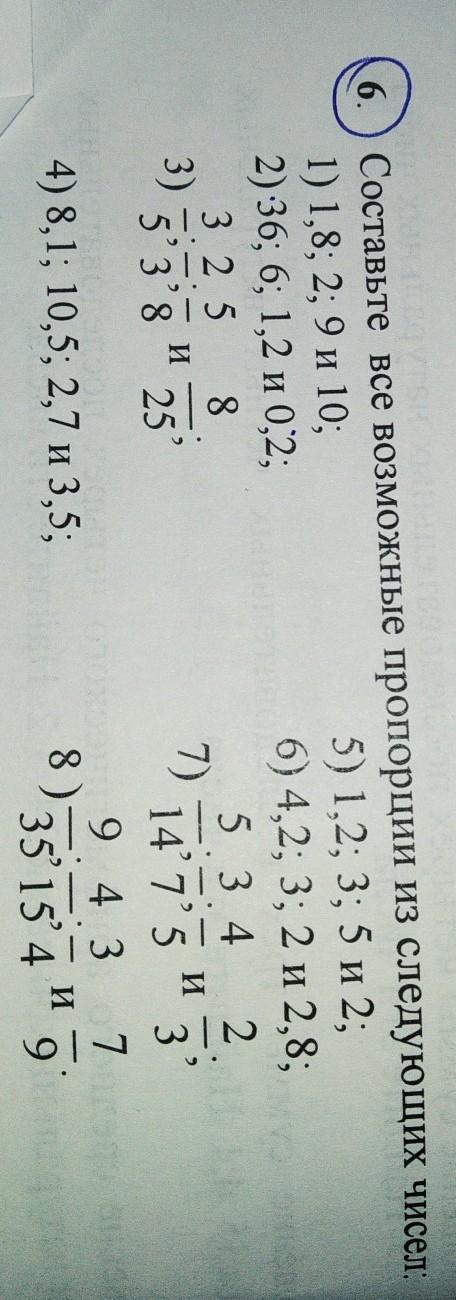 6. Составьте все возможные пропорции из следующих чисел:
1) 1,8; 2; 9 и 10;
2) 36; 6; 1,2 и 0,2;
3) 3/5; 2/3; 5/8 и 8/25;
4) 8,1; 10,5; 2,7 и 3,5;
5) 1,2; 3; 5 и 2;
6) 4,2; 3; 2 и 2,8;
7) 5/14; 3/7; 4/5 и 2/3;
8) 9/35; 4/15; 3/4 и 7/9.